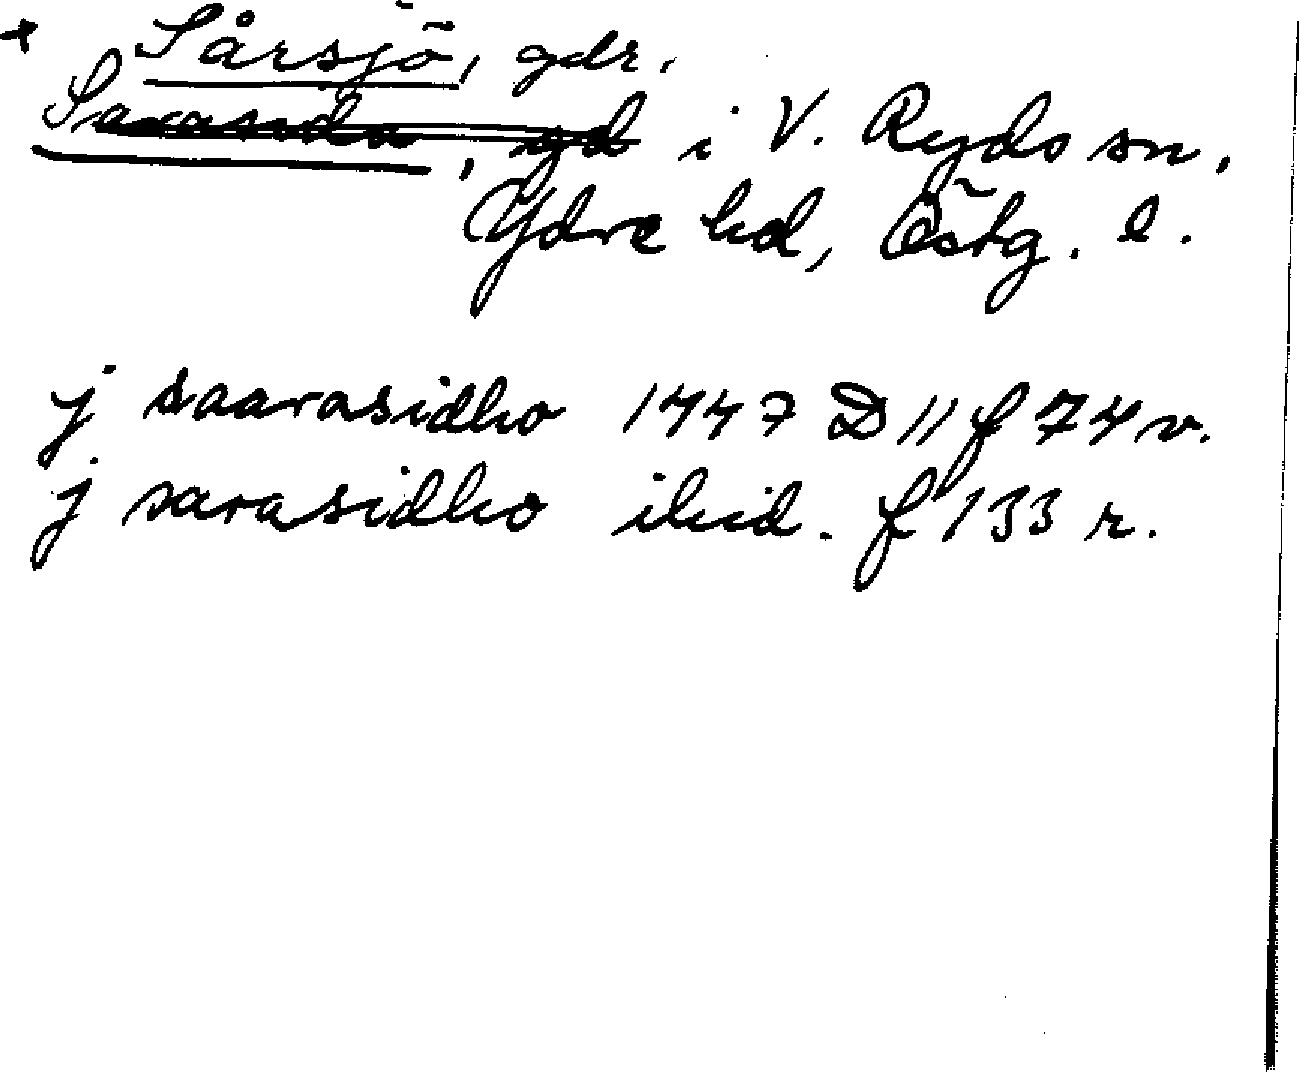 + Sårsjö, gdr.
Sarasida, gd i V. Ryds sn,
Ydre hd, Östg. l.
j saarasidho 1447 D 11 f 74 v.
j sarasidho ibid. f 133 r.